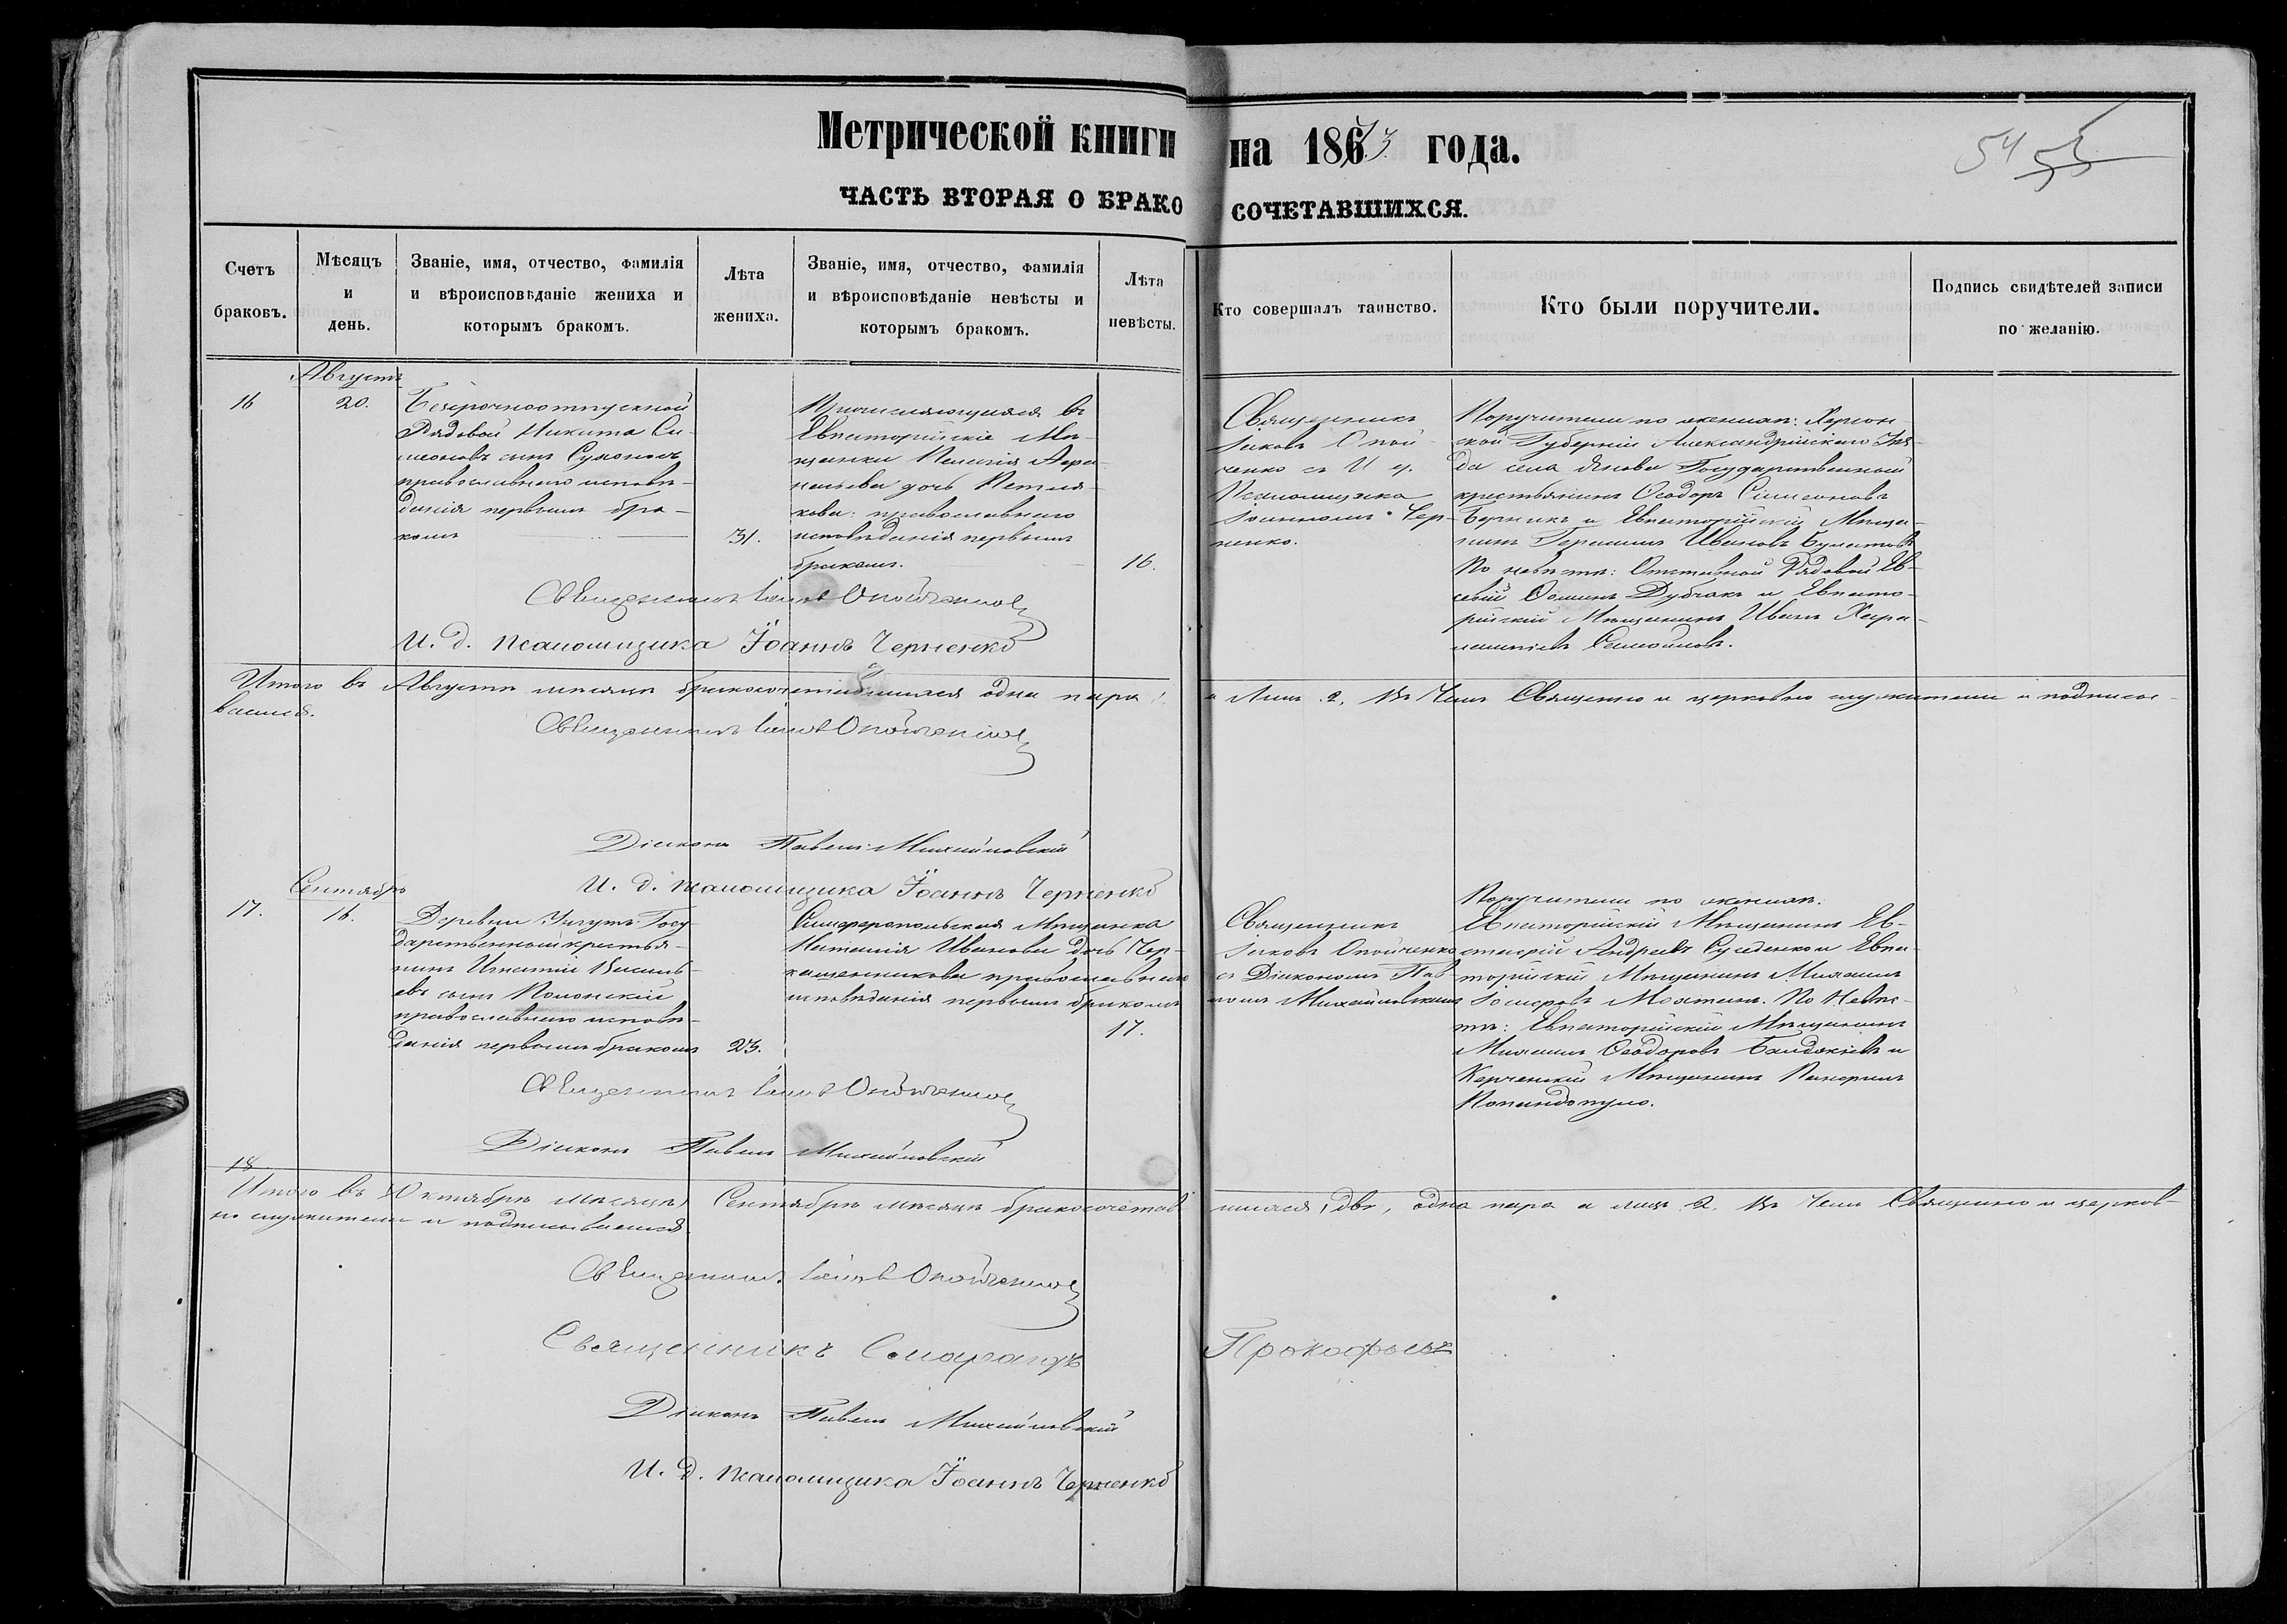 Метрической книги на 1873 года.
54 55
ЧАСТЬ ВТОРАЯ О БРАКОСОЧЕТАВШИХСЯ.
Счетъ браковъ.
Мѣсяцъ и день.
Званіе, имя, отчество, фамилія
и вѣроисповѣданіе жениха и
которымъ бракомъ.
Лѣта жениха.
Званіе, имя, отчество, фамилія
и вѣроисповѣданіе невѣсты и
которымъ бракомъ.
Лѣта невѣсты.
Кто совершалъ таинство.
Кто были поручители.
Подпись свидѣтелей записи
по желанію.
Августъ
16
20.
Безсрочноотпускной
Рядовой Никита Си-
меоновъ сынъ
православнаго исповѣ-
данія первымъ бра-
комъ
31.
Причисляющаяся въ
Евпаторійскіе Мѣ-
щанки Пелагія
дочь
православнаго
исповѣданія первымъ
бракомъ.
16.
Священникъ
Іаковъ Опой-
ченко съ И. д.
Псаломщика
Іоанномъ Чер-
ненко.
Поручители по женихѣ: Херсон
ской Губерніи Александрійскаго Уѣз
да села Государственный
крестьянинъ Ѳеодоръ Симеоновъ
и Евпаторійскій Мѣща-
нинъ Герасимъ Ивановъ
По невѣстѣ: Отставной Рядовой Ев-
севій Ѳоминъ Дубчакъ и Евпато-
рійскій Мѣщанинъ Иванъ Хара-
лампіевъ Самойловъ.
Священникъ Іаковъ Опойченко
И. д. псаломщика Іоаннъ Черненко
Итого въ Августѣ мѣсяцѣ бракосочетавшихся одна пара а лицъ 2. Въ чемъ Священно и церковно служители и подписы-
ваемся.
Священникъ Іаковъ Опойченко
Діаконъ Павелъ Михайловскій
И. д. псаломщика Іоаннъ Черненко
Сентябрь
17.
16.
Деревни Госу
дарственный крестья-
нинъ Игнатій Василь-
евъ сынъ Полонскій
православнаго исповѣ-
данія первымъ бракомъ
23.
Симферопольская Мѣщанка
Наталія Иванова дочь
православнаго
исповѣданія первымъ бракомъ
17.
Священникъ
Іаковъ Опойченко
съ Діакономъ Пав
ломъ Михайловскимъ
Поручители по женихѣ:
Евпаторійскій Мѣщанинъ Ев-
Андреевъ и Евпа-
торійскій Мѣщанинъ Михаилъ
По Невѣс-
тѣ: Евпаторійскій Мѣщанинъ
Михаилъ Ѳеодоровъ и
Керченскій Мѣщанинъ
Попандопуло.
Священникъ Іаковъ Опойченко
Діаконъ Павелъ Михайловскій
18
Итого въ Октябрѣ мѣсяцѣ Сентябрѣ мѣсяцѣ бракосочетавшихся, двѣ, одна пара а лицъ 2. Въ чемъ Священно и церков-
но служители и подписываемся.
Священникъ Іаковъ Опойченко
Священникъ Смарагдъ Прокофьевъ
Діаконъ Павелъ Михайловскій
И. д. псаломщика Іоаннъ Черненко